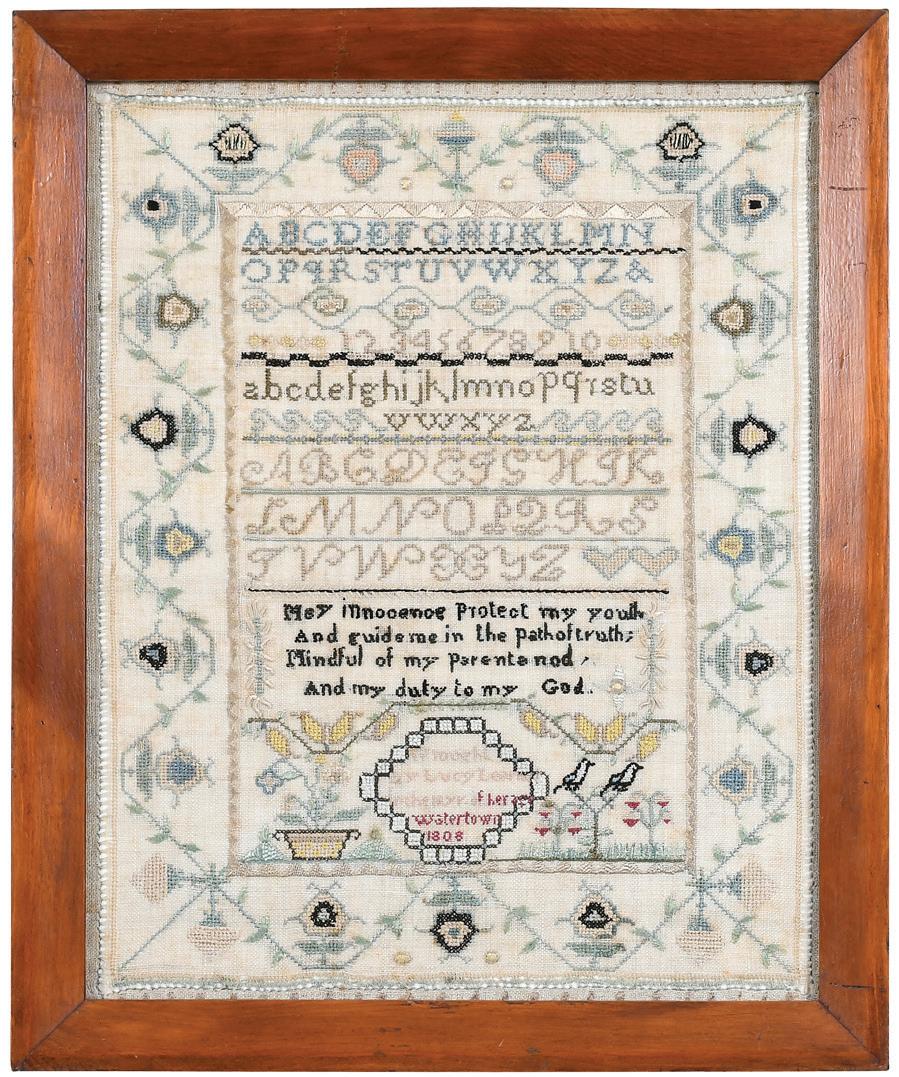 ABCDEFGHIJKLMN
OPqRSTUVWXYZ&
12345678910
abcdefghijklmnopqrstu
vwxyz
ABCDEFGHIK
LMNOPQRS
TVWXYZ
May innocence Protect my youth
And guide me in the path of truth;
Mindful of my Parents nod,
And my duty to my God.
Lucy
of her age
Watertown
1808